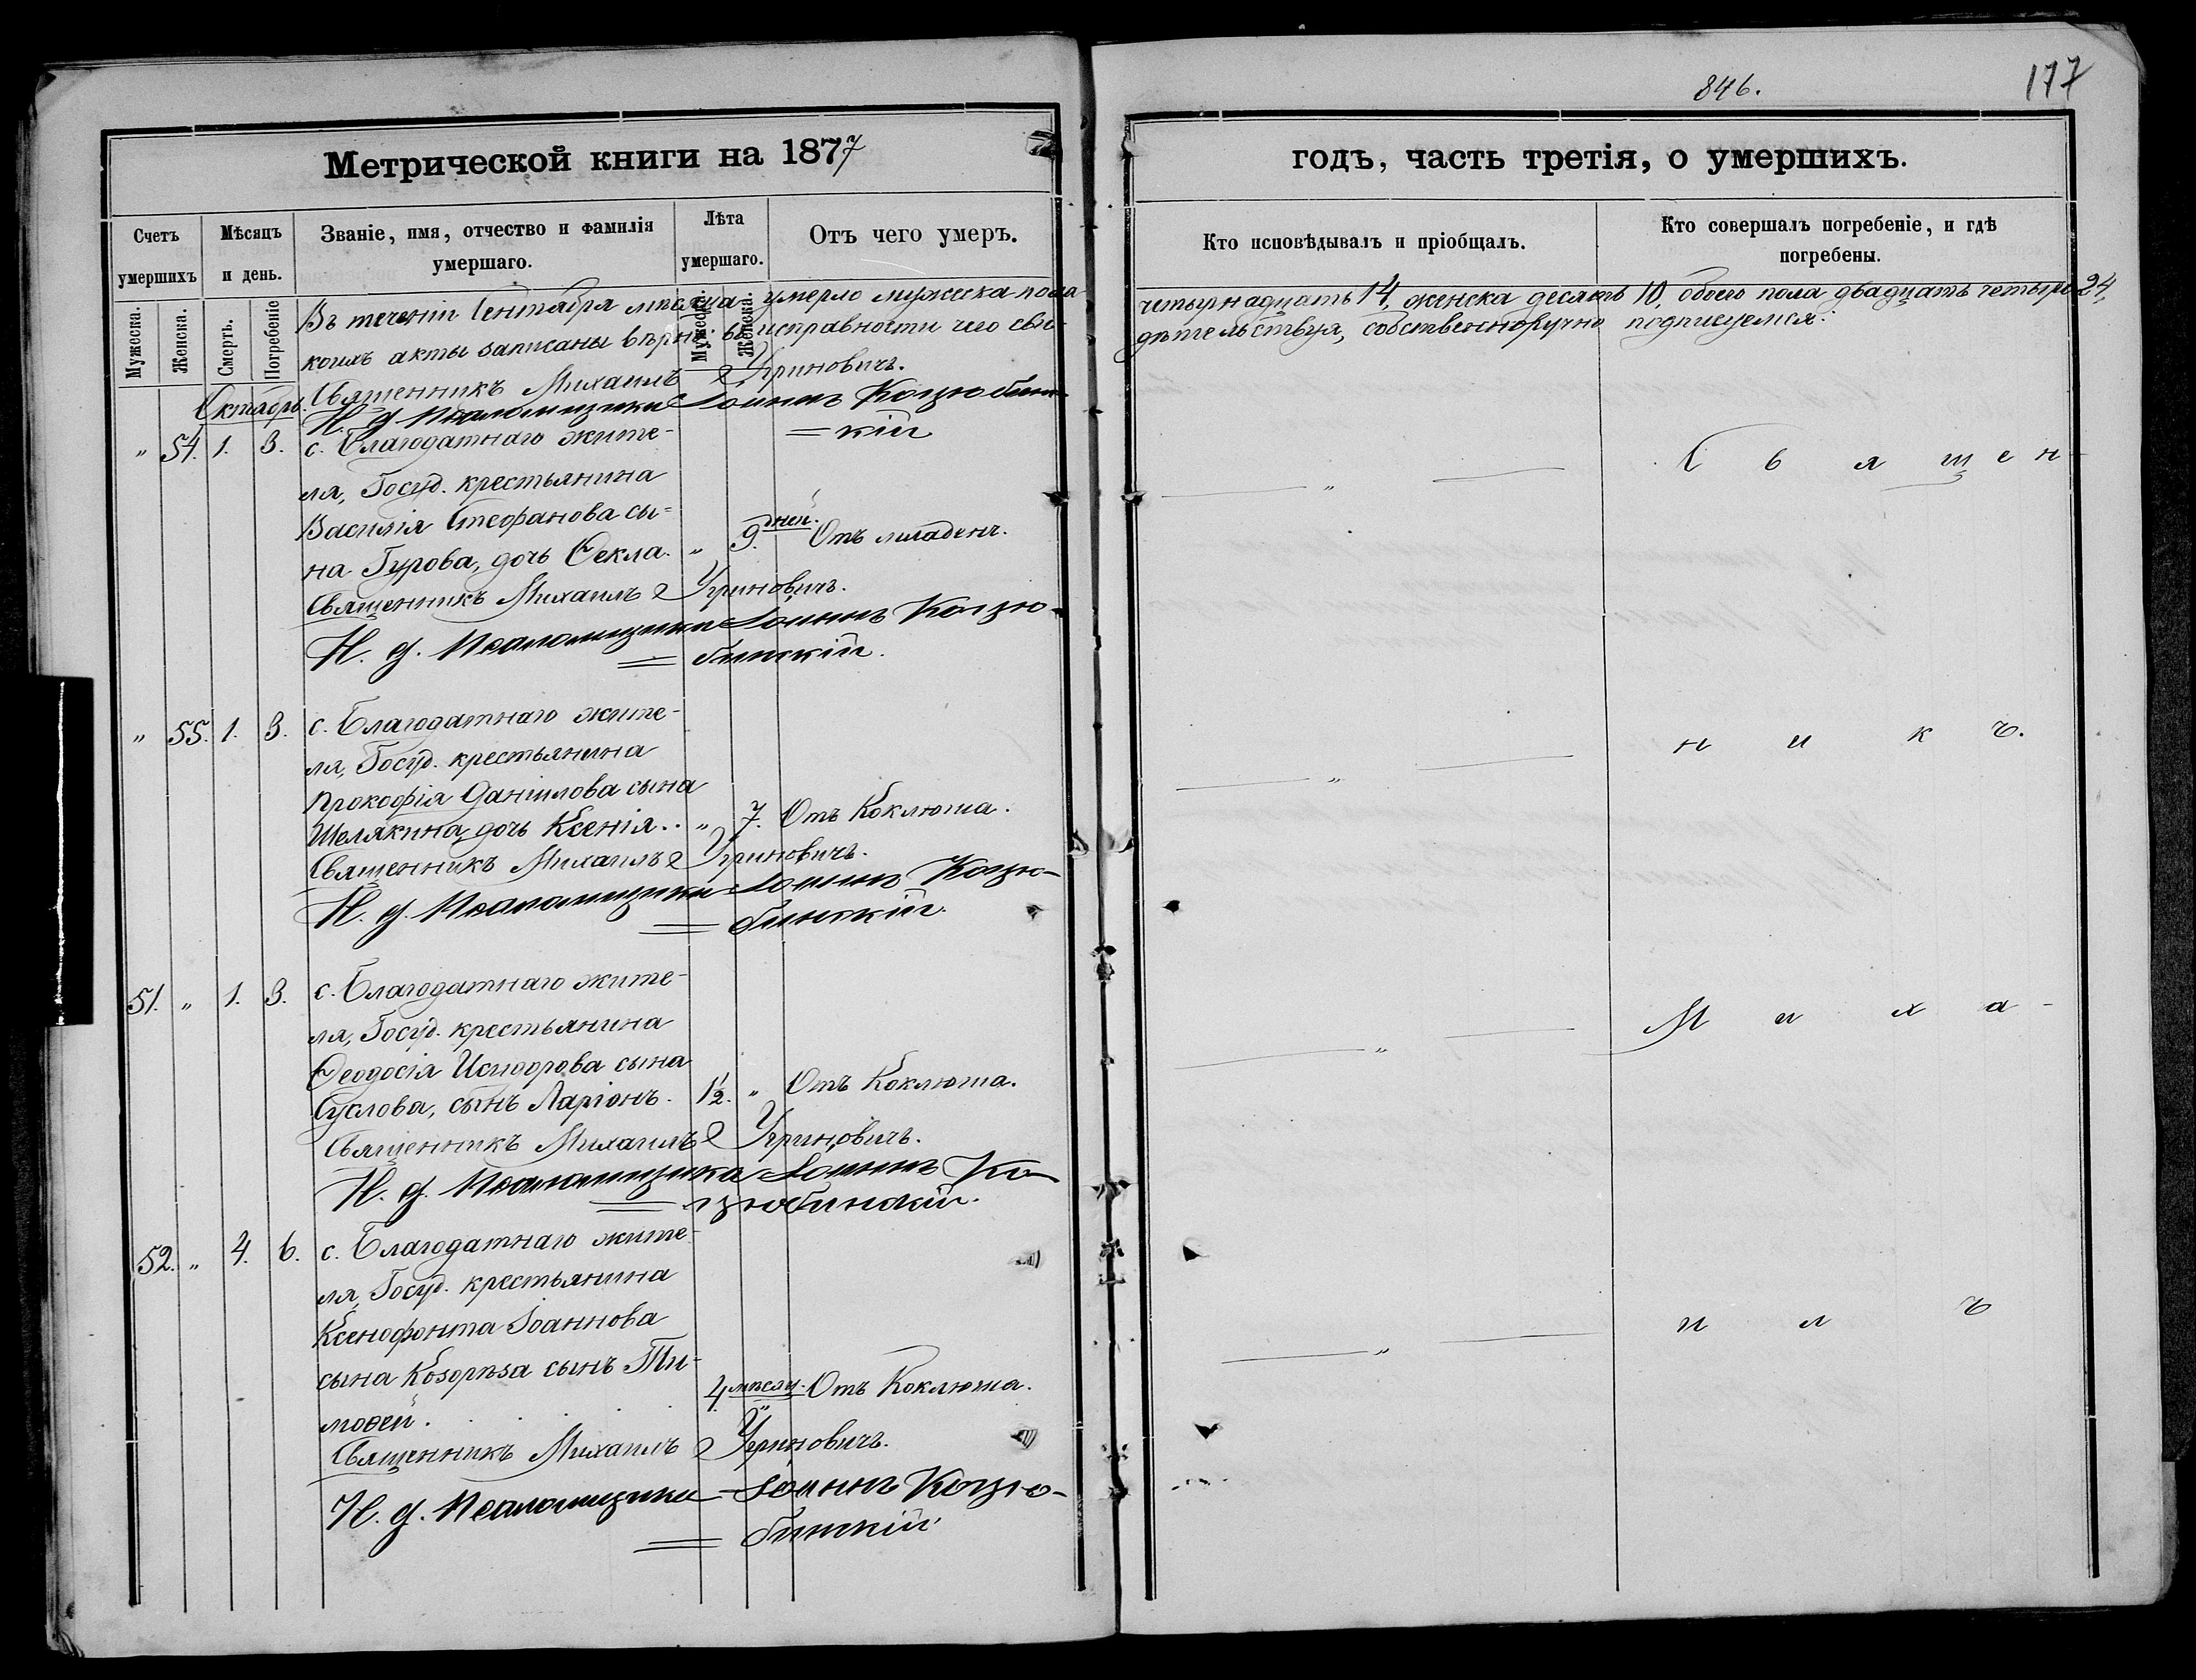 846.
177
Метрической книги на 1877
годъ, часть третія, о умершихъ.
Счетъ умершихъ
Мѣсяцъ и день.
Званіе, имя, отчество и фамилія умершаго.
Лѣта умершаго.
Отъ чего умеръ.
Кто исповѣдывалъ и пріобщалъ.
Кто совершалъ погребеніе, и гдѣ погребены.
Мужеска.
Женска.
Смерть.
Погребеніе
Мужеска.
Женска.
Въ теченіи Сентября мѣсяца умерло мужеска пола четырнадцать 14, женска десять 10, обоего пола двадцать четыре 24,
коихъ акты записаны вѣрно. въ исправности чего сви-дѣтельствуя, собственноручно подписуемся:
Священникъ Михаилъ Угриновичъ.
И. д. Псаломщика Іоаннъ Коцюбин-
=скій
Октябрь.
" 54. 1. 3. с. Благодатнаго жите-
ля, Госуд. крестьянина
Василія Стефанова сы-
на Гурова, дочь Ѳекла. " 9. дней. Отъ младенч.
Священникъ Михаилъ Угриновичъ.
И. д. Псаломщика Іоаннъ Коцю-
= бинскій.
" 55. 1. 3. с. Благодатнаго жите-
ля, Госуд. крестьянина
Прокофія Даніилова сына
Шелякина, дочь Ксенія. . " 7. Отъ Коклюша.
Священникъ Михаилъ Угриновичъ.
И. д. Псаломщика Іоаннъ Коцю-
= бинскій.
51. " 1. 3. с. Благодатнаго жите-
ля, Госуд. крестьянина
Ѳеодосія Исидорова сына
Суслова, сынъ Ларіонъ. 1½. " Отъ Коклюша.
Священникъ Михаилъ Угриновичъ.
И. д. Псаломщика Іоаннъ Ко-
= цюбинскій.
52. " 4. 6. с. Благодатнаго жите-
ля, Госуд. крестьянина
Ксенофонта Іоаннова
сына Козорѣза сынъ Ти-
моѳей. 4 мѣсяц. " Отъ Коклюша.
Священникъ Михаилъ Угриновичъ.
И. д. Псаломщика Іоаннъ Коцю-
= бинскій
" С в я щ е н -
" н и к ъ.
" М и х а -
" и л ъ